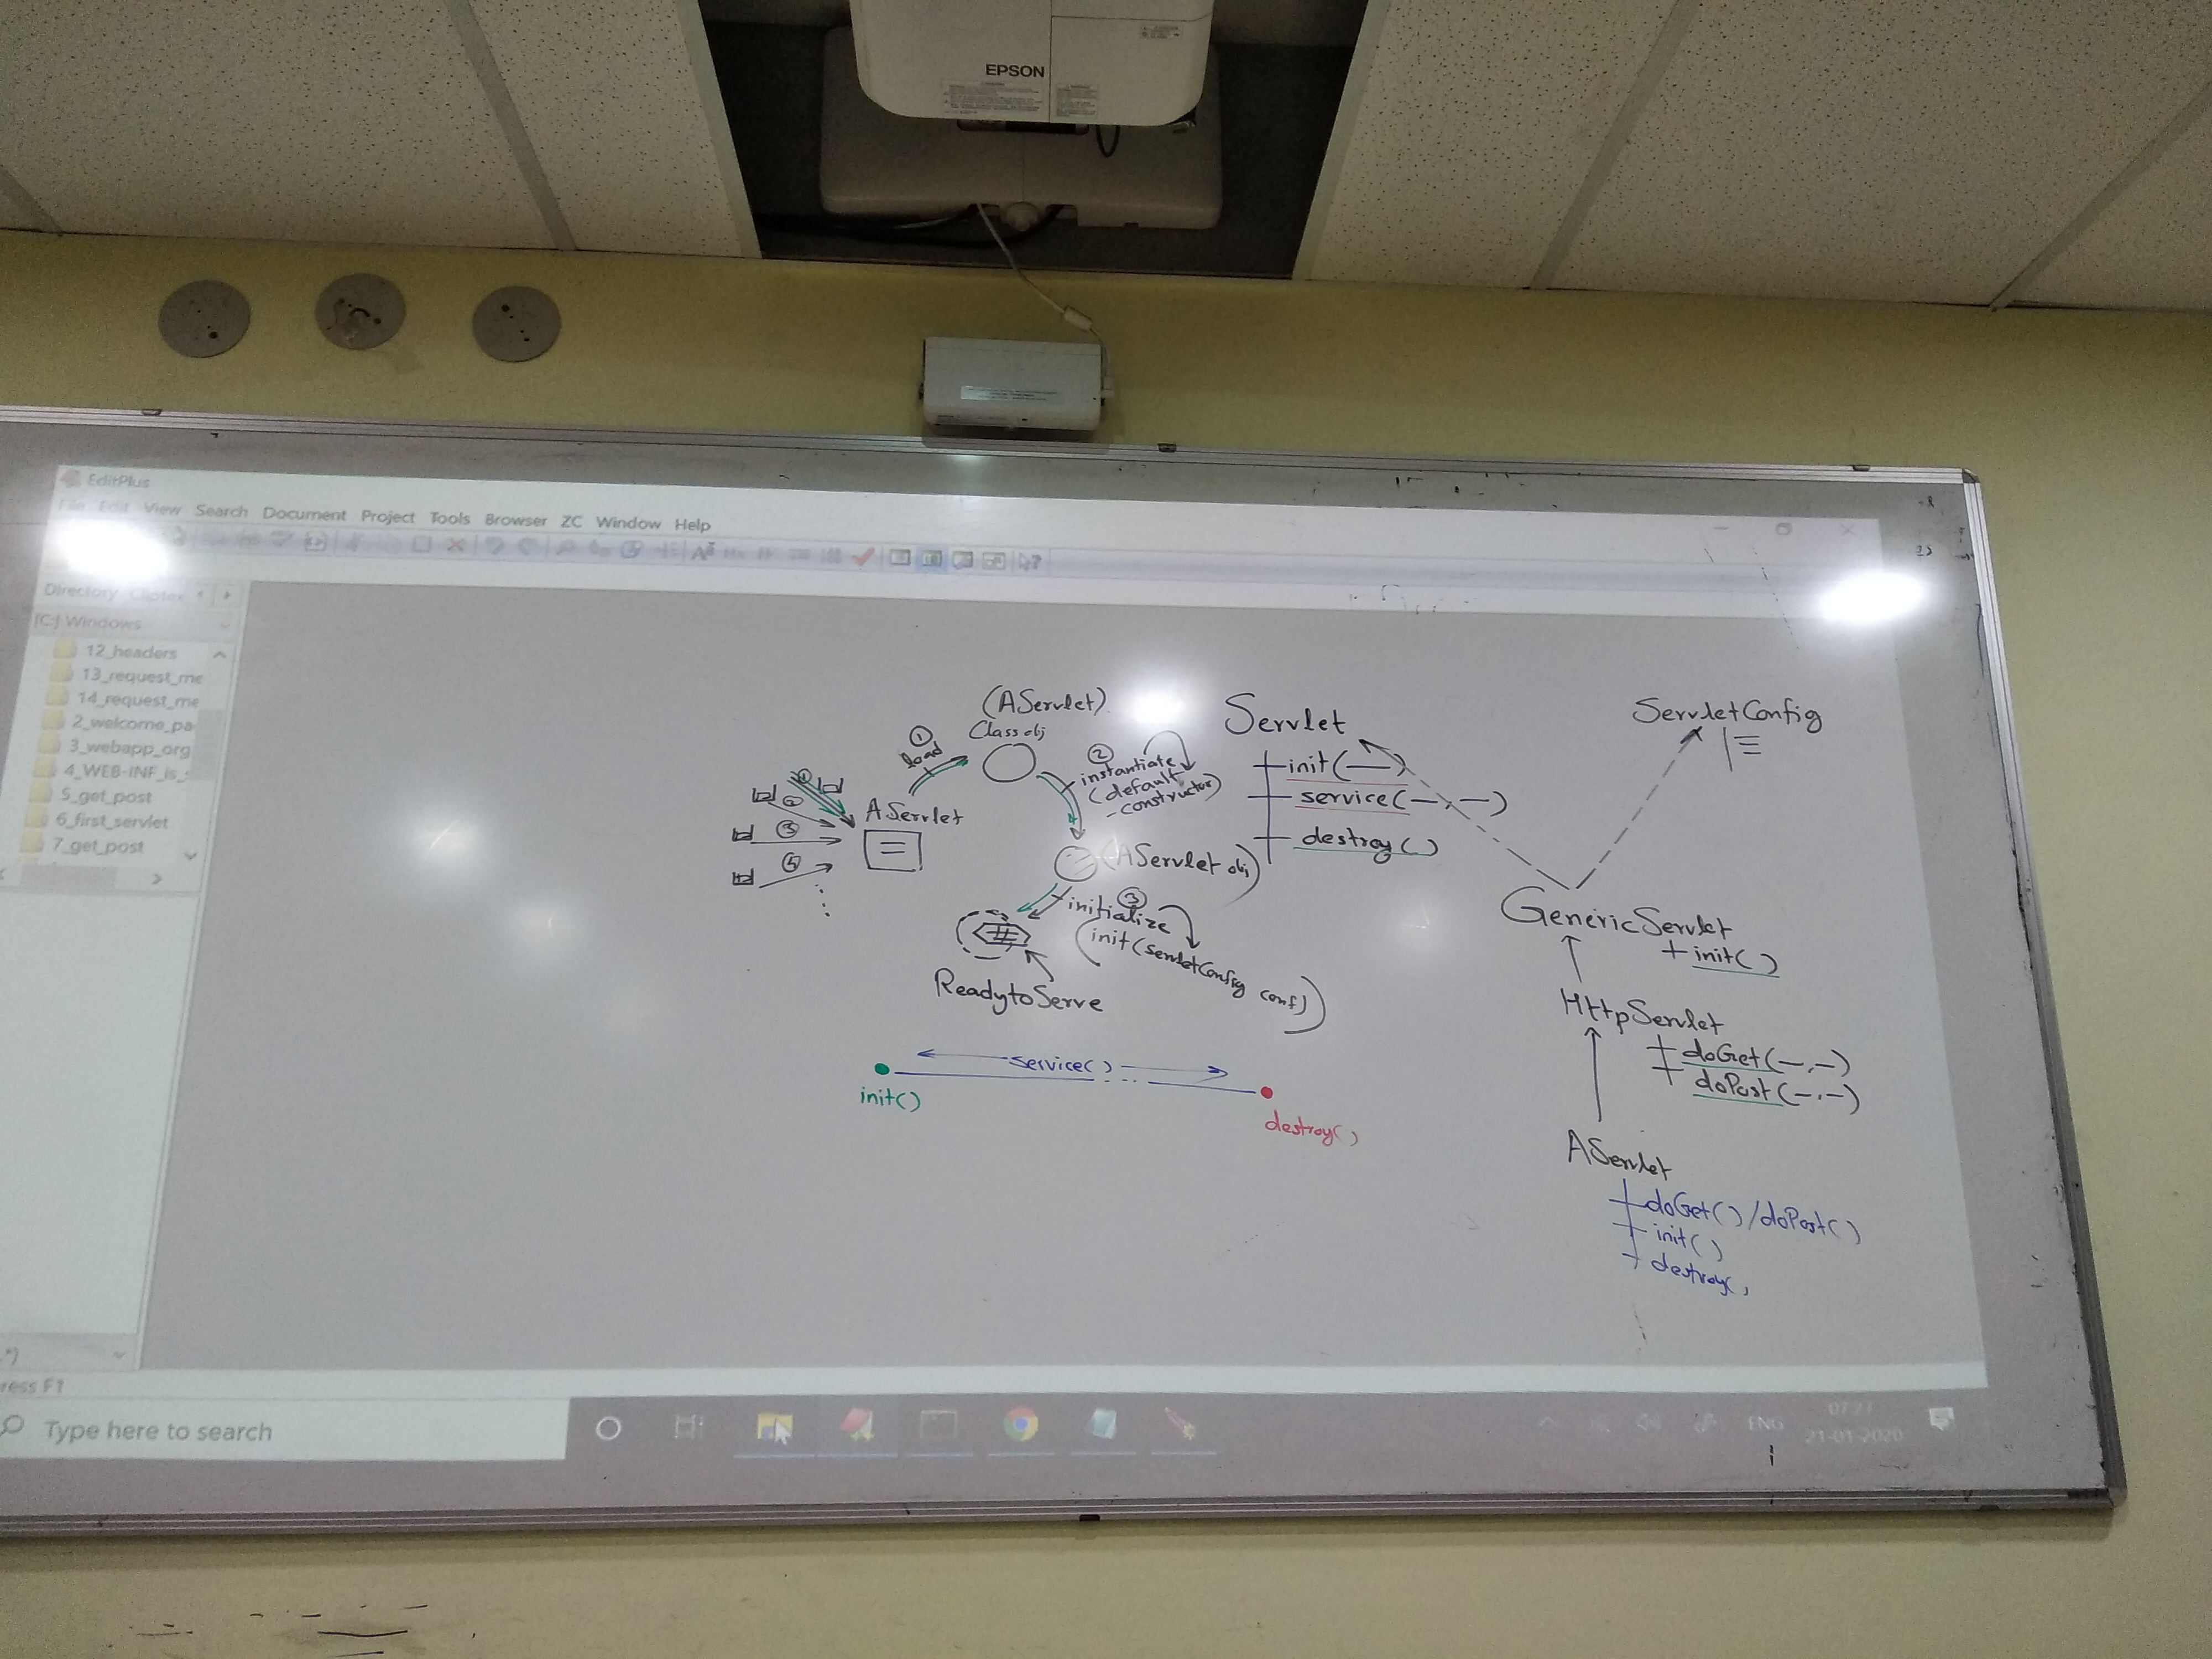 EPSON
EditPlus
File Edit View Search Document Project Tools Browser ZC Window Help
Directory Cliptex
[C:] Windows
12_headers
13_request_me
14_request_me
2_welcome_pa
3_webapp_org
4_WEB-INF_is_
5_get_post
6_first_servlet
7_get_post
(AServlet)
Class obj
① load
② instantiate
(default
-constructor)
① ② ③ ④
AServlet
(AServlet obj)
③ initialize
(init(servletConfig conf))
ReadytoServe
Servlet
init(—)
service(—,—)
destroy()
ServletConfig
GenericServlet
+ init()
HttpServlet
doGet(—,—)
doPost(—,—)
AServlet
doGet()/doPost()
init()
destroy()
service()
init()
destroy()
ress F1
Type here to search
ENG
07:27
21-01-2020